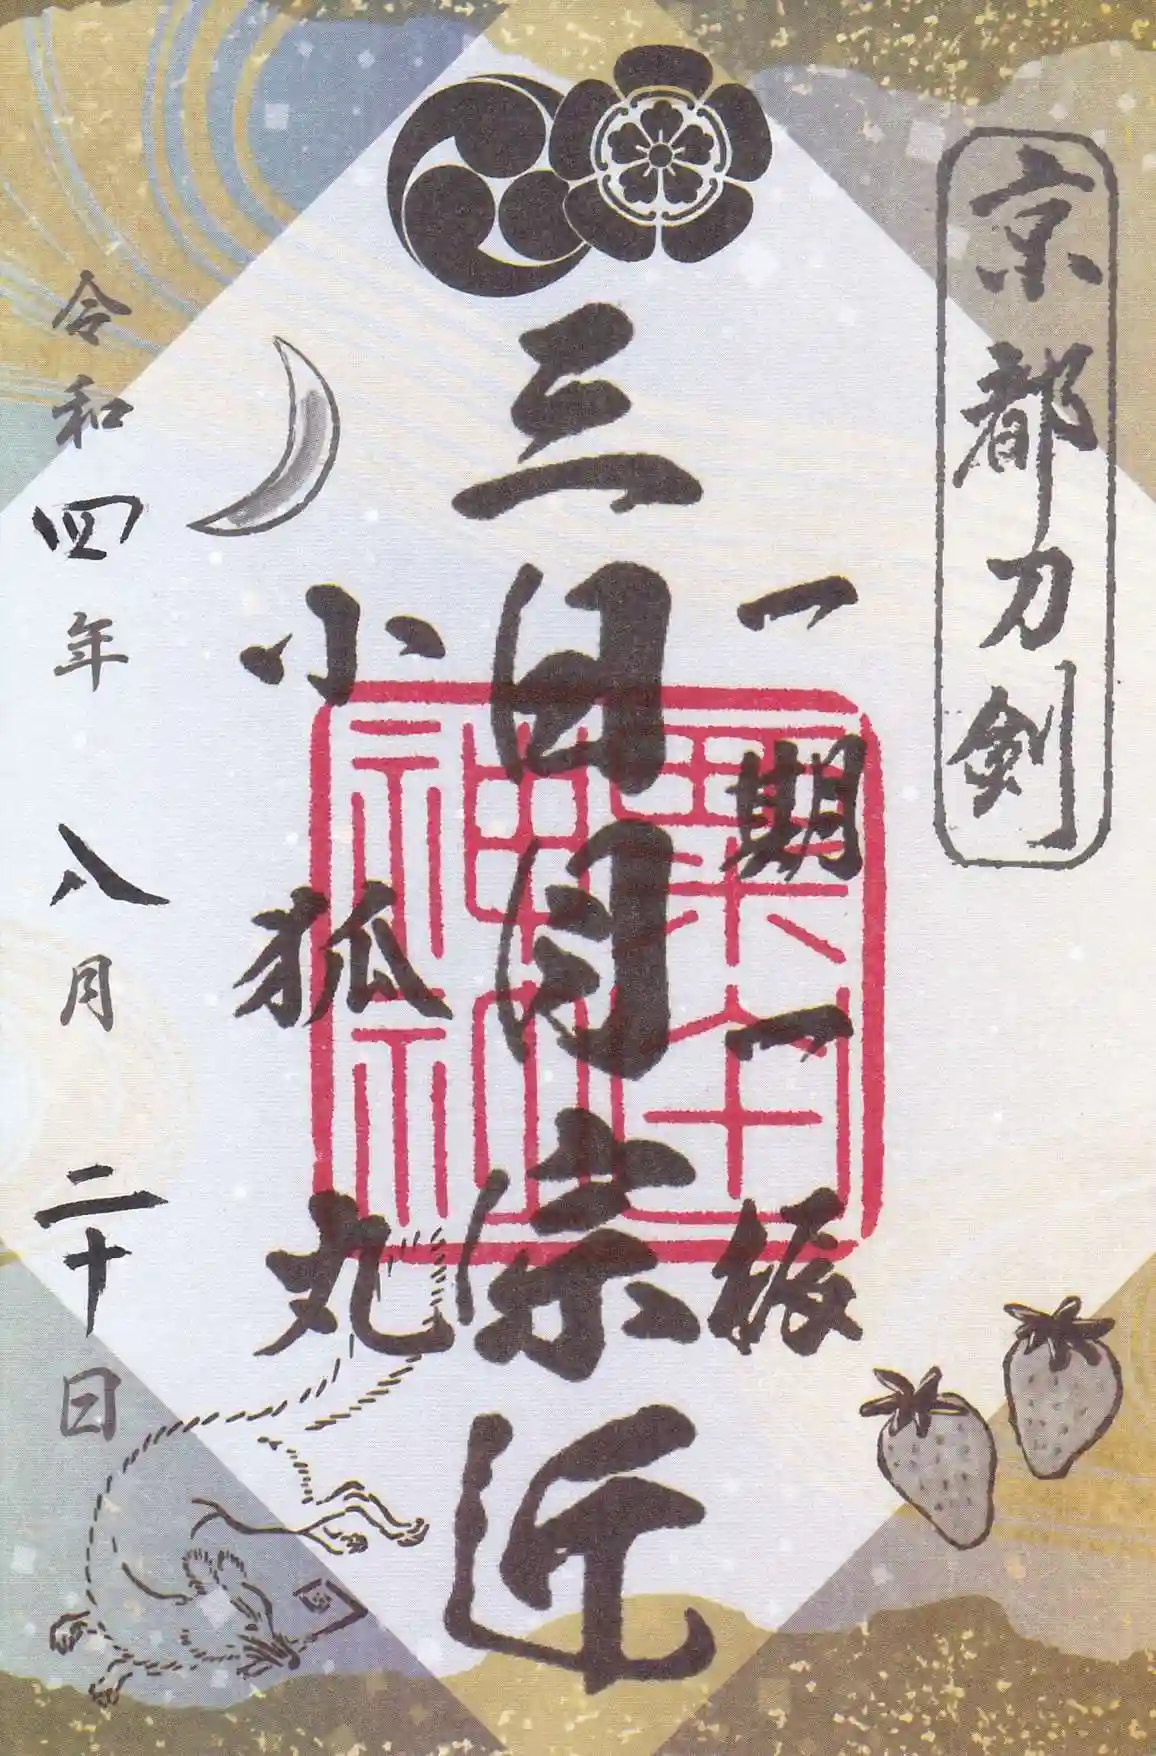 京都刀剣
一期一振
三日月宗近
小狐丸
令和四年八月二十日
粟田
神社